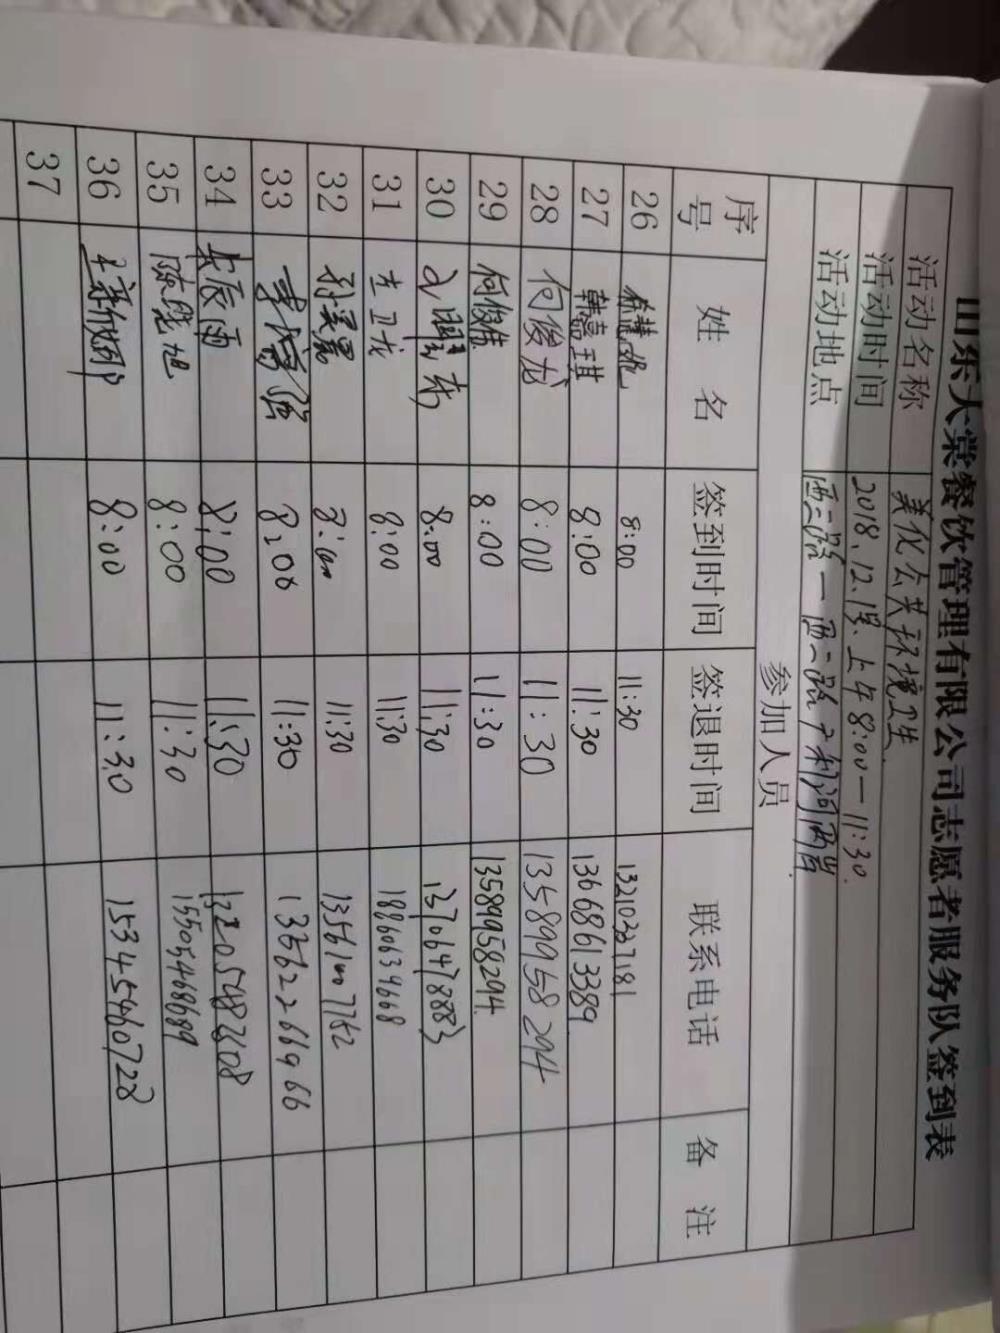 山东大棠餐饮管理有限公司志愿者服务队签到表
活动名称 美化公共环境卫生
活动时间 2018.12.18. 上午8:00—11:30.
活动地点 西三路一西二路广利河两岸
参加人员
序号 姓名 签到时间 签退时间 联系电话 备注
26 8:00 11:30 13210327181
27 韩嘉琪 8:00 11:30 13668613389
28 何俊龙 8:00 11:30 13589958294
29 何俊伟 8:00 11:30 13589958294
30 8:00 11:30 13706478883
31 8:00 11:30 18860634668
32 8:00 11:30 13561007752
33 8:00 11:30 13562266966
34 8:00 11:30
35 陈晓旭 8:00 11:30 15505468689
36 8:00 11:30 15345460728
37